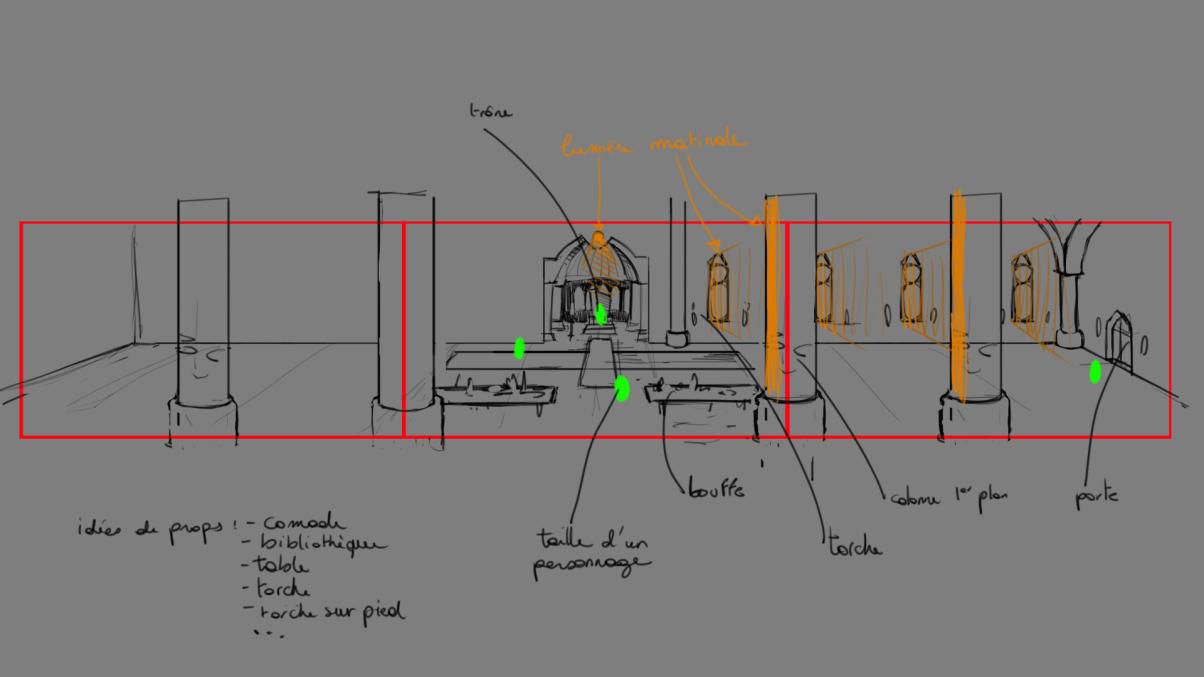 trône
lumière matinale
bouffe
colonne 1er plan
porte
taille d'un
personnage
torche
idées de props : - comode
- bibliothèque
- table
- torche
- torche sur pied
...